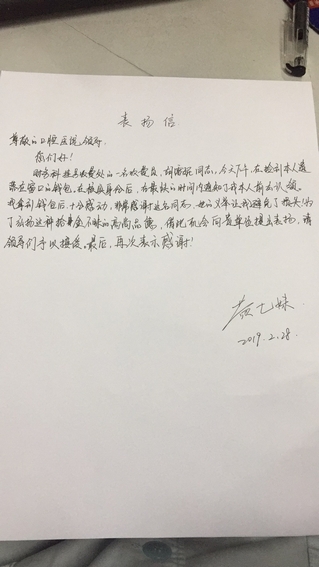 表扬信
尊敬的口腔医院领导:
你们好!
财务科挂号收费处的一名收费员 同志,今天下午,在捡到本人遗
落在窗口的钱包,在核实身份后,在最短的时间内通知了我本人前去认领。
我拿到钱包后,十分感动,非常感谢这名同志,她的义举让我避免了损失!为
了弘扬这种拾金不昧的高尚品德,借此机会向贵单位提出表扬,请
领导们予以接受。最后,再次表示感谢!
黄七妹
2019.2.28.